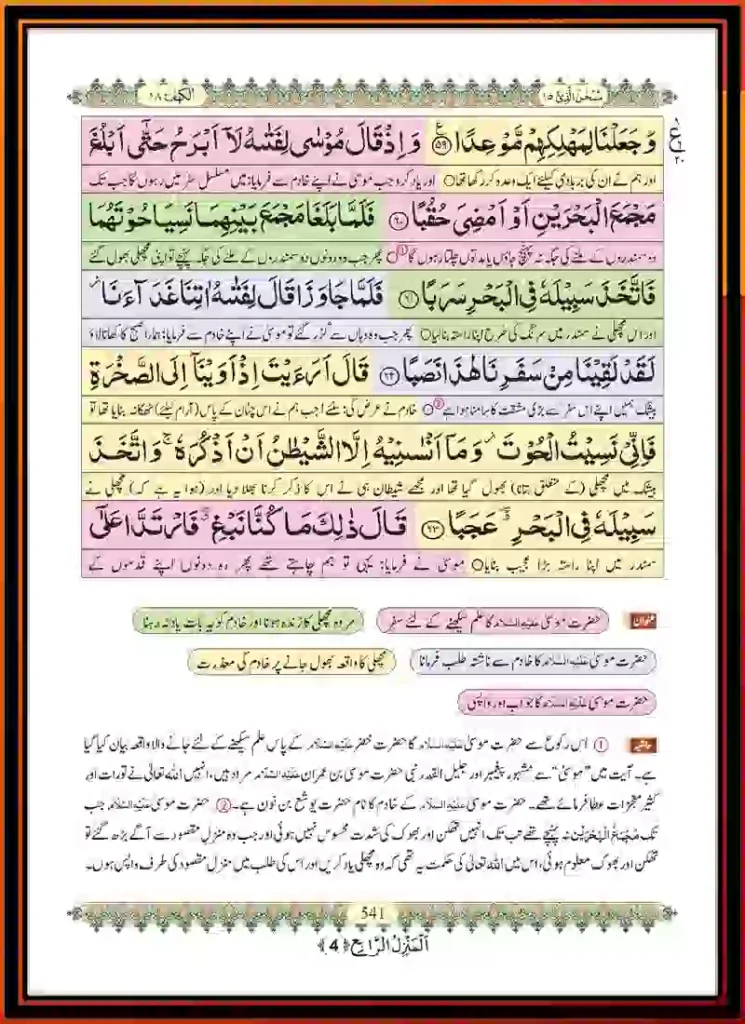 سُبْحٰنَ الَّذِیْۤ ۱۵
الکہف ۱۸
ع
۲۰
وَ جَعَلْنَا لِمَهْلِكِهِمْ مَّوْعِدًا۠ ﴿۵۹﴾ وَ اِذْ قَالَ مُوْسٰى لِفَتٰىهُ لَاۤ اَبْرَحُ حَتّٰۤى اَبْلُغَ
اور ہم نے ان کی بربادی کیلئے ایک وعدہ کر رکھا تھا ○ اور یاد کرو جب موسیٰ نے اپنے خادم سے فرمایا: میں مسلسل سفر میں رہوں گا جب تک
مَجْمَعَ الْبَحْرَیْنِ اَوْ اَمْضِیَ حُقُبًا ﴿۶۰﴾ فَلَمَّا بَلَغَا مَجْمَعَ بَیْنِهِمَا نَسِیَا حُوْتَهُمَا
دو سمندروں کے ملنے کی جگہ نہ پہنچ جاؤں یا مدتوں چلتا رہوں گا ①○ پھر جب وہ دونوں دو سمندروں کے ملنے کی جگہ پہنچے تو اپنی مچھلی بھول گئے
فَاتَّخَذَ سَبِیْلَهٗ فِی الْبَحْرِ سَرَبًا ﴿۶۱﴾ فَلَمَّا جَاوَزَا قَالَ لِفَتٰىهُ اٰتِنَا غَدَآءَنَا٘
اور اس مچھلی نے سمندر میں سرنگ کی طرح اپنا راستہ بنالیا ○ پھر جب وہ وہاں سے گزر گئے تو موسیٰ نے اپنے خادم سے فرمایا: ہمارا صبح کا کھانا لاؤ
لَقَدْ لَقِیْنَا مِنْ سَفَرِنَا هٰذَا نَصَبًا ﴿۶۲﴾ قَالَ اَرَءَیْتَ اِذْ اَوَیْنَاۤ اِلَى الصَّخْرَةِ
بیشک ہمیں اپنے اس سفر سے بڑی مشقت کا سامنا ہوا ہے ②○ خادم نے عرض کی: سنئے! جب ہم نے اس چٹان کے پاس (آرام کیلئے) ٹھکانہ بنایا تھا تو
فَاِنِّیْ نَسِیْتُ الْحُوْتَ٘ وَ مَاۤ اَنْسٰىنِیْهُ اِلَّا الشَّیْطٰنُ اَنْ اَذْكُرَهٗۚ وَ اتَّخَذَ
بیشک میں مچھلی (کے متعلق بتانا) بھول گیا تھا اور مجھے شیطان ہی نے اس کا ذکر کرنا بھلا دیا اور (ہوا یہ ہے کہ) مچھلی نے
سَبِیْلَهٗ فِی الْبَحْرِ ﳓ عَجَبًا ﴿۶۳﴾ قَالَ ذٰلِكَ مَا كُنَّا نَبْغِ ﳓ فَارْتَدَّا عَلٰۤى
سمندر میں اپنا راستہ بڑا عجیب بنایا ○ موسیٰ نے فرمایا: یہی تو ہم چاہتے تھے پھر وہ دونوں اپنے قدموں کے
عنوان حضرت موسیٰ عَلَيْهِ السَّلَام کا علم سیکھنے کے لئے سفر مردہ مچھلی کا زندہ ہونا اور خادم کو یہ بات یاد نہ رہنا
حضرت موسیٰ عَلَيْهِ السَّلَام کا خادم سے ناشتہ طلب فرمانا مچھلی کا واقعہ بھول جانے پر خادم کی معذرت
حضرت موسیٰ عَلَيْهِ السَّلَام کا جواب اور واپسی
حاشیہ ① اس رکوع سے حضرت موسیٰ عَلَيْهِ السَّلَام کا حضرت خضر عَلَيْهِ السَّلَام کے پاس علم سیکھنے کے لئے جانے والا واقعہ بیان کیا گیا
ہے۔ آیت میں "موسیٰ" سے مشہور پیغمبر اور جلیل القدر نبی حضرت موسیٰ بن عمران عَلَيْهِ السَّلَام مراد ہیں، انہیں اللہ تعالیٰ نے تورات اور
کثیر معجزات عطا فرمائے تھے۔ حضرت موسیٰ عَلَيْهِ السَّلَام کے خادم کا نام حضرت یوشع بن نون ہے۔ ② حضرت موسیٰ عَلَيْهِ السَّلَام جب
تک مَجْمَعُ الْبَحْرَيْن نہ پہنچے تھے تب تک انہیں تھکن اور بھوک کی شدت محسوس نہیں ہوئی اور جب وہ منزل مقصود سے آگے بڑھ گئے تو
تھکن اور بھوک معلوم ہوئی، اس میں اللہ تعالیٰ کی حکمت یہ تھی کہ وہ مچھلی یاد کریں اور اس کی طلب میں منزل مقصود کی طرف واپس ہوں۔
541
اَلْمَنْزِلُ الرَّابِع ﴿4﴾